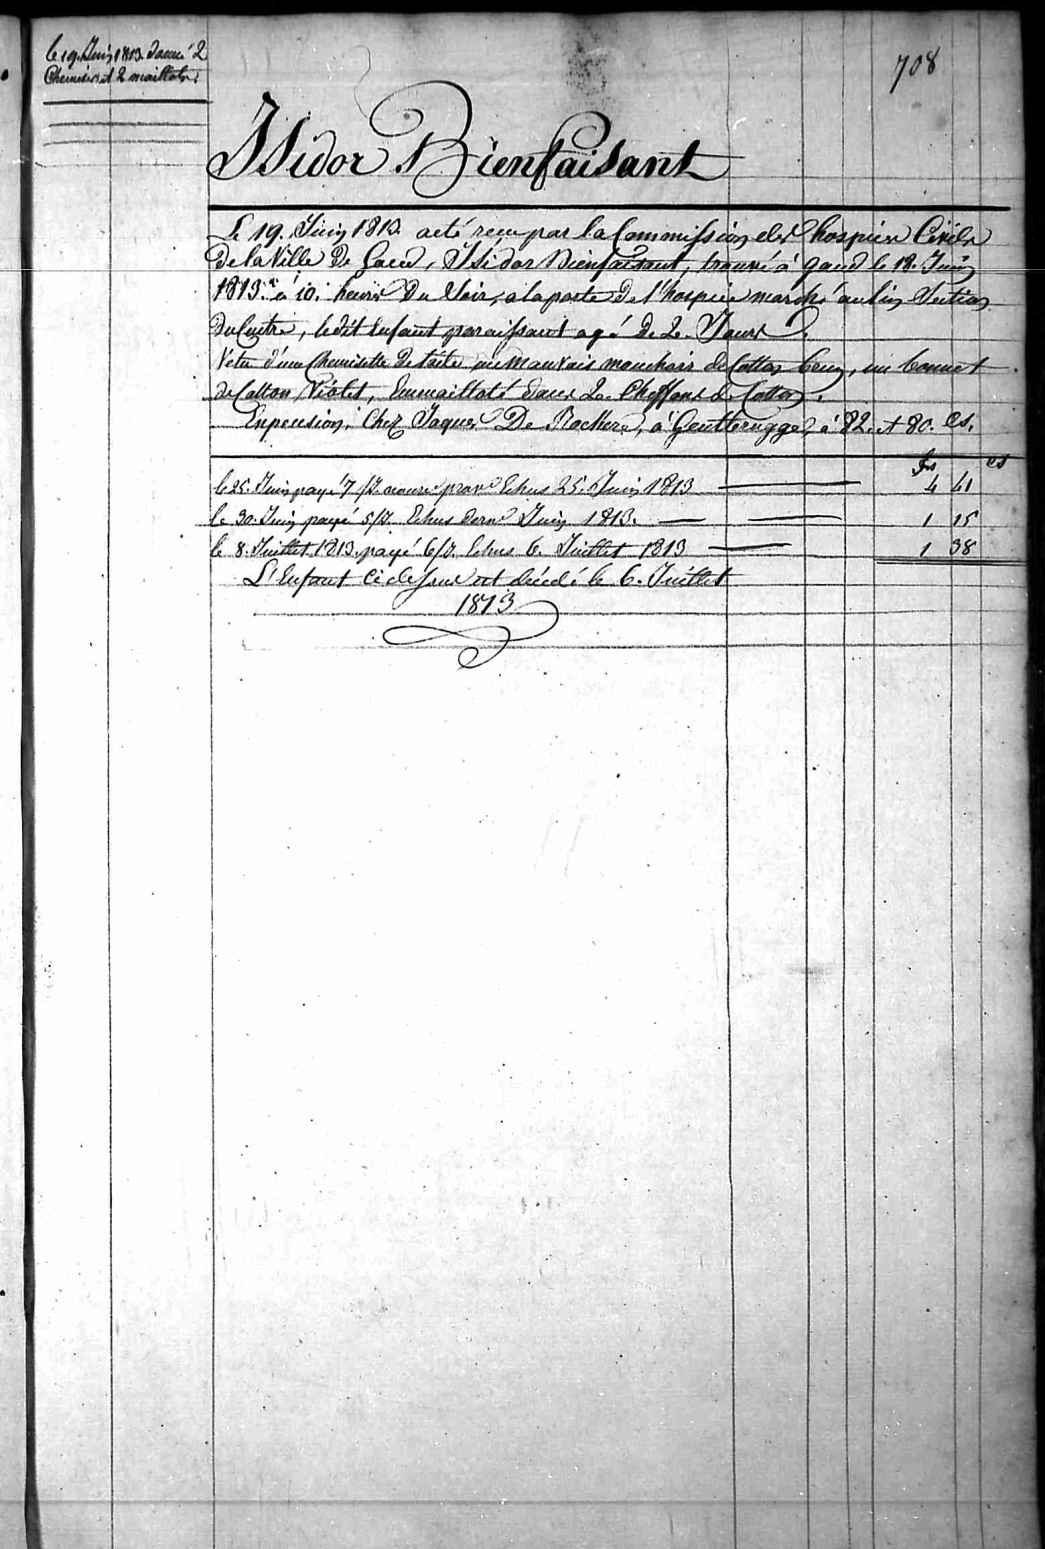 le 19. Juin 1813. donné 2
Chemises et 2 maillots.
708
Isidor Bienfaisant
Le 19. Juin 1813. a été recu par la Commission des hospices Civils
de la Ville de Gand, Isidor Bienfaisant, trouvé à gand le 18. Juin
1813. à 10. heures Du Soir, a la porte De l'hospice marché au lin Section
du Centre, le dit Enfant paraissant agé de 2. Jours.
Vetu d'une Chemisette de toile un Mauvais mouchoir de Cotton bleu, un bonnet
de Cotton Violet, Emmailloté dans 2. Cheffons de Cotton.
En pension, Chez Jaques De Rockere, à Gentbrugge, à 82. et 80. cs.
frs cs
le 25. Juin payé 7/J. Echus 25. Juin 1813 4 41
le 30. Juin payé 5/J. Echus dern. Juin 1813. 1 15
le 8. Juillet 1813. payé 6/J. Echus 6. Juillet 1813 1 38
L'Enfant Ci dessus est décédé le 6. Juillet
1813